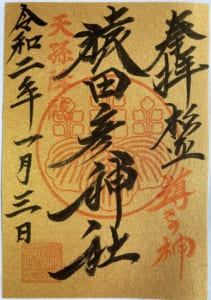 奉拝
猿田彦神社
天孫降臨
令和二年一月三日